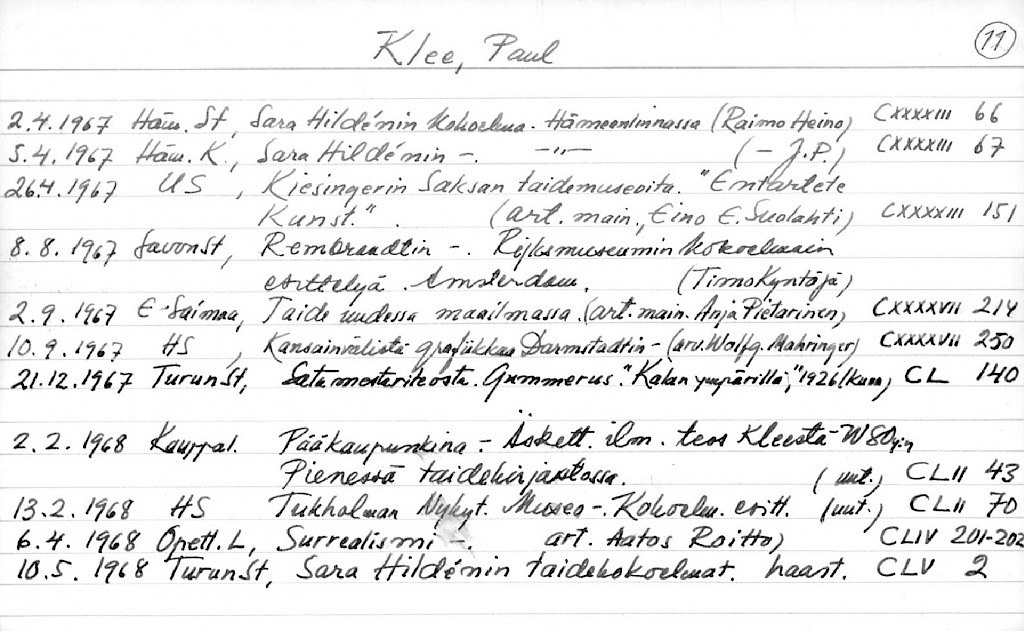 Klee, Paul
11
2.4.1967 Häm. St, Sara Hildénin kokoelma. Hämeenlinnassa (Raimo Heino) CXXXXIII 66
5.4.1967 Häm. K., Sara Hildénin -. -"- (- J.P.) CXXXXIII 67
26.4.1967 US, Kiesingerin Saksan taidemuseoita. "Entartete
Kunst." . (art. main., Eino E. Suolahti) CXXXXIII 151
8.8.1967 SavonSt, Rembrandtin -. Rijksmuseumin kokoelmain
esittelyä. Amsterdam. (Timo Kyntöjä)
2.9.1967 E-Saimaa, Taide uudessa maailmassa. (art. main. Anja Pietarinen) CXXXXVII 214
10.9.1967 HS, Kansainvälistä grafiikkaa Darmstadtin - (arv. Wolfg. Mahringer) CXXXXVII 250
21.12.1967 TurunSt, Sata mestariteosta. Gummerus. "Kalan ympärillä," 1926! (kuva) CL 140
2.2.1968 Kauppal. Pääkaupunkina - Äskett. ilm. teos Kleestä WSOy:n
Pienessä taidekirjastossa. (uut.) CLII 43
13.2.1968 HS Tukholman Nykyt. Museo -. Kokoelm. esitt. (uut.) CLII 70
6.4.1968 Opett. L, Surrealismi -. art. Aatos Roitto) CLIV 201-202
10.5.1968 TurunSt, Sara Hildénin taidekokoelmat. haast. CLV 2